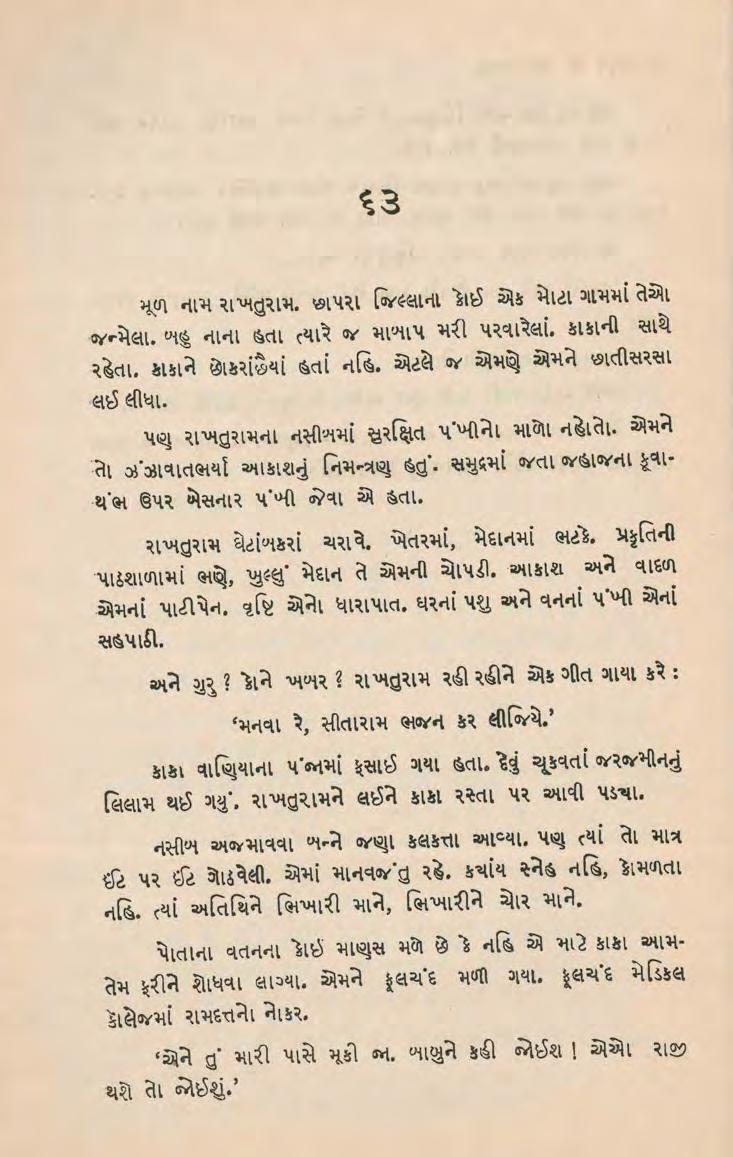 ૬૩
મૂળ નામ રાખતુરામ. છાપરા જિલ્લાના કોઈ એક મોટા ગામમાં તેઓ
જન્મેલા. બહુ નાના હતા ત્યારે જ માબાપ મરી પરવારેલાં. કાકાની સાથે
રહેતા. કાકાને છોકરાંછૈયાં હતાં નહિ. એટલે જ એમણે એમને છાતીસરસા
લઈ લીધા.
પણ રાખતુરામના નસીબમાં સુરક્ષિત પંખીનો માળો નહોતો. એમને
તો ઝંઝાવાતભર્યા આકાશનું નિમન્ત્રણ હતું. સમુદ્રમાં જતા જહાજના કૂવા-
થંભ ઉપર બેસનાર પંખી જેવા એ હતા.
રાખતુરામ ઘેટાંબકરાં ચરાવે. ખેતરમાં, મેદાનમાં ભટકે. પ્રકૃતિની
પાઠશાળામાં ભણે, ખુલ્લું મેદાન તે એમની ચોપડી. આકાશ અને વાદળ
એમનાં પાટીપેન. વૃષ્ટિ એનો ધારાપાત. ઘરનાં પશુ અને વનનાં પંખી એનાં
સહપાઠી.
અને ગુરુ ? કોને ખબર ? રાખતુરામ રહી રહીને એક ગીત ગાયા કરે :
‘મનવા રે, સીતારામ ભજન કર લીજિયે.’
કાકા વાણિયાના પંજામાં ફસાઈ ગયા હતા. દેવું ચૂકવતાં જરજમીનનું
લિલામ થઈ ગયું. રાખતુરામને લઈને કાકા રસ્તા પર આવી પડ્યા.
નસીબ અજમાવવા બન્ને જણા કલકત્તા આવ્યા. પણ ત્યાં તો માત્ર
ઈંટ પર ઈંટ ગોઠવેલી. એમાં માનવજંતુ રહે. કયાંય સ્નેહ નહિ, કોમળતા
નહિ. ત્યાં અતિથિને ભિખારી માને, ભિખારીને ચોર માને.
પોતાના વતનના કોઈ માણસ મળે છે કે નહિ એ માટે કાકા આમ-
તેમ ફરીને શોધવા લાગ્યા. એમને ફૂલચંદ મળી ગયા. ફૂલચંદ મેડિકલ
કોલેજમાં રામદત્તનો નોકર.
‘એને તું મારી પાસે મૂકી જા. બાબુને કહી જોઈશ ! એઓ રાજી
થશે તો જોઈશું.’